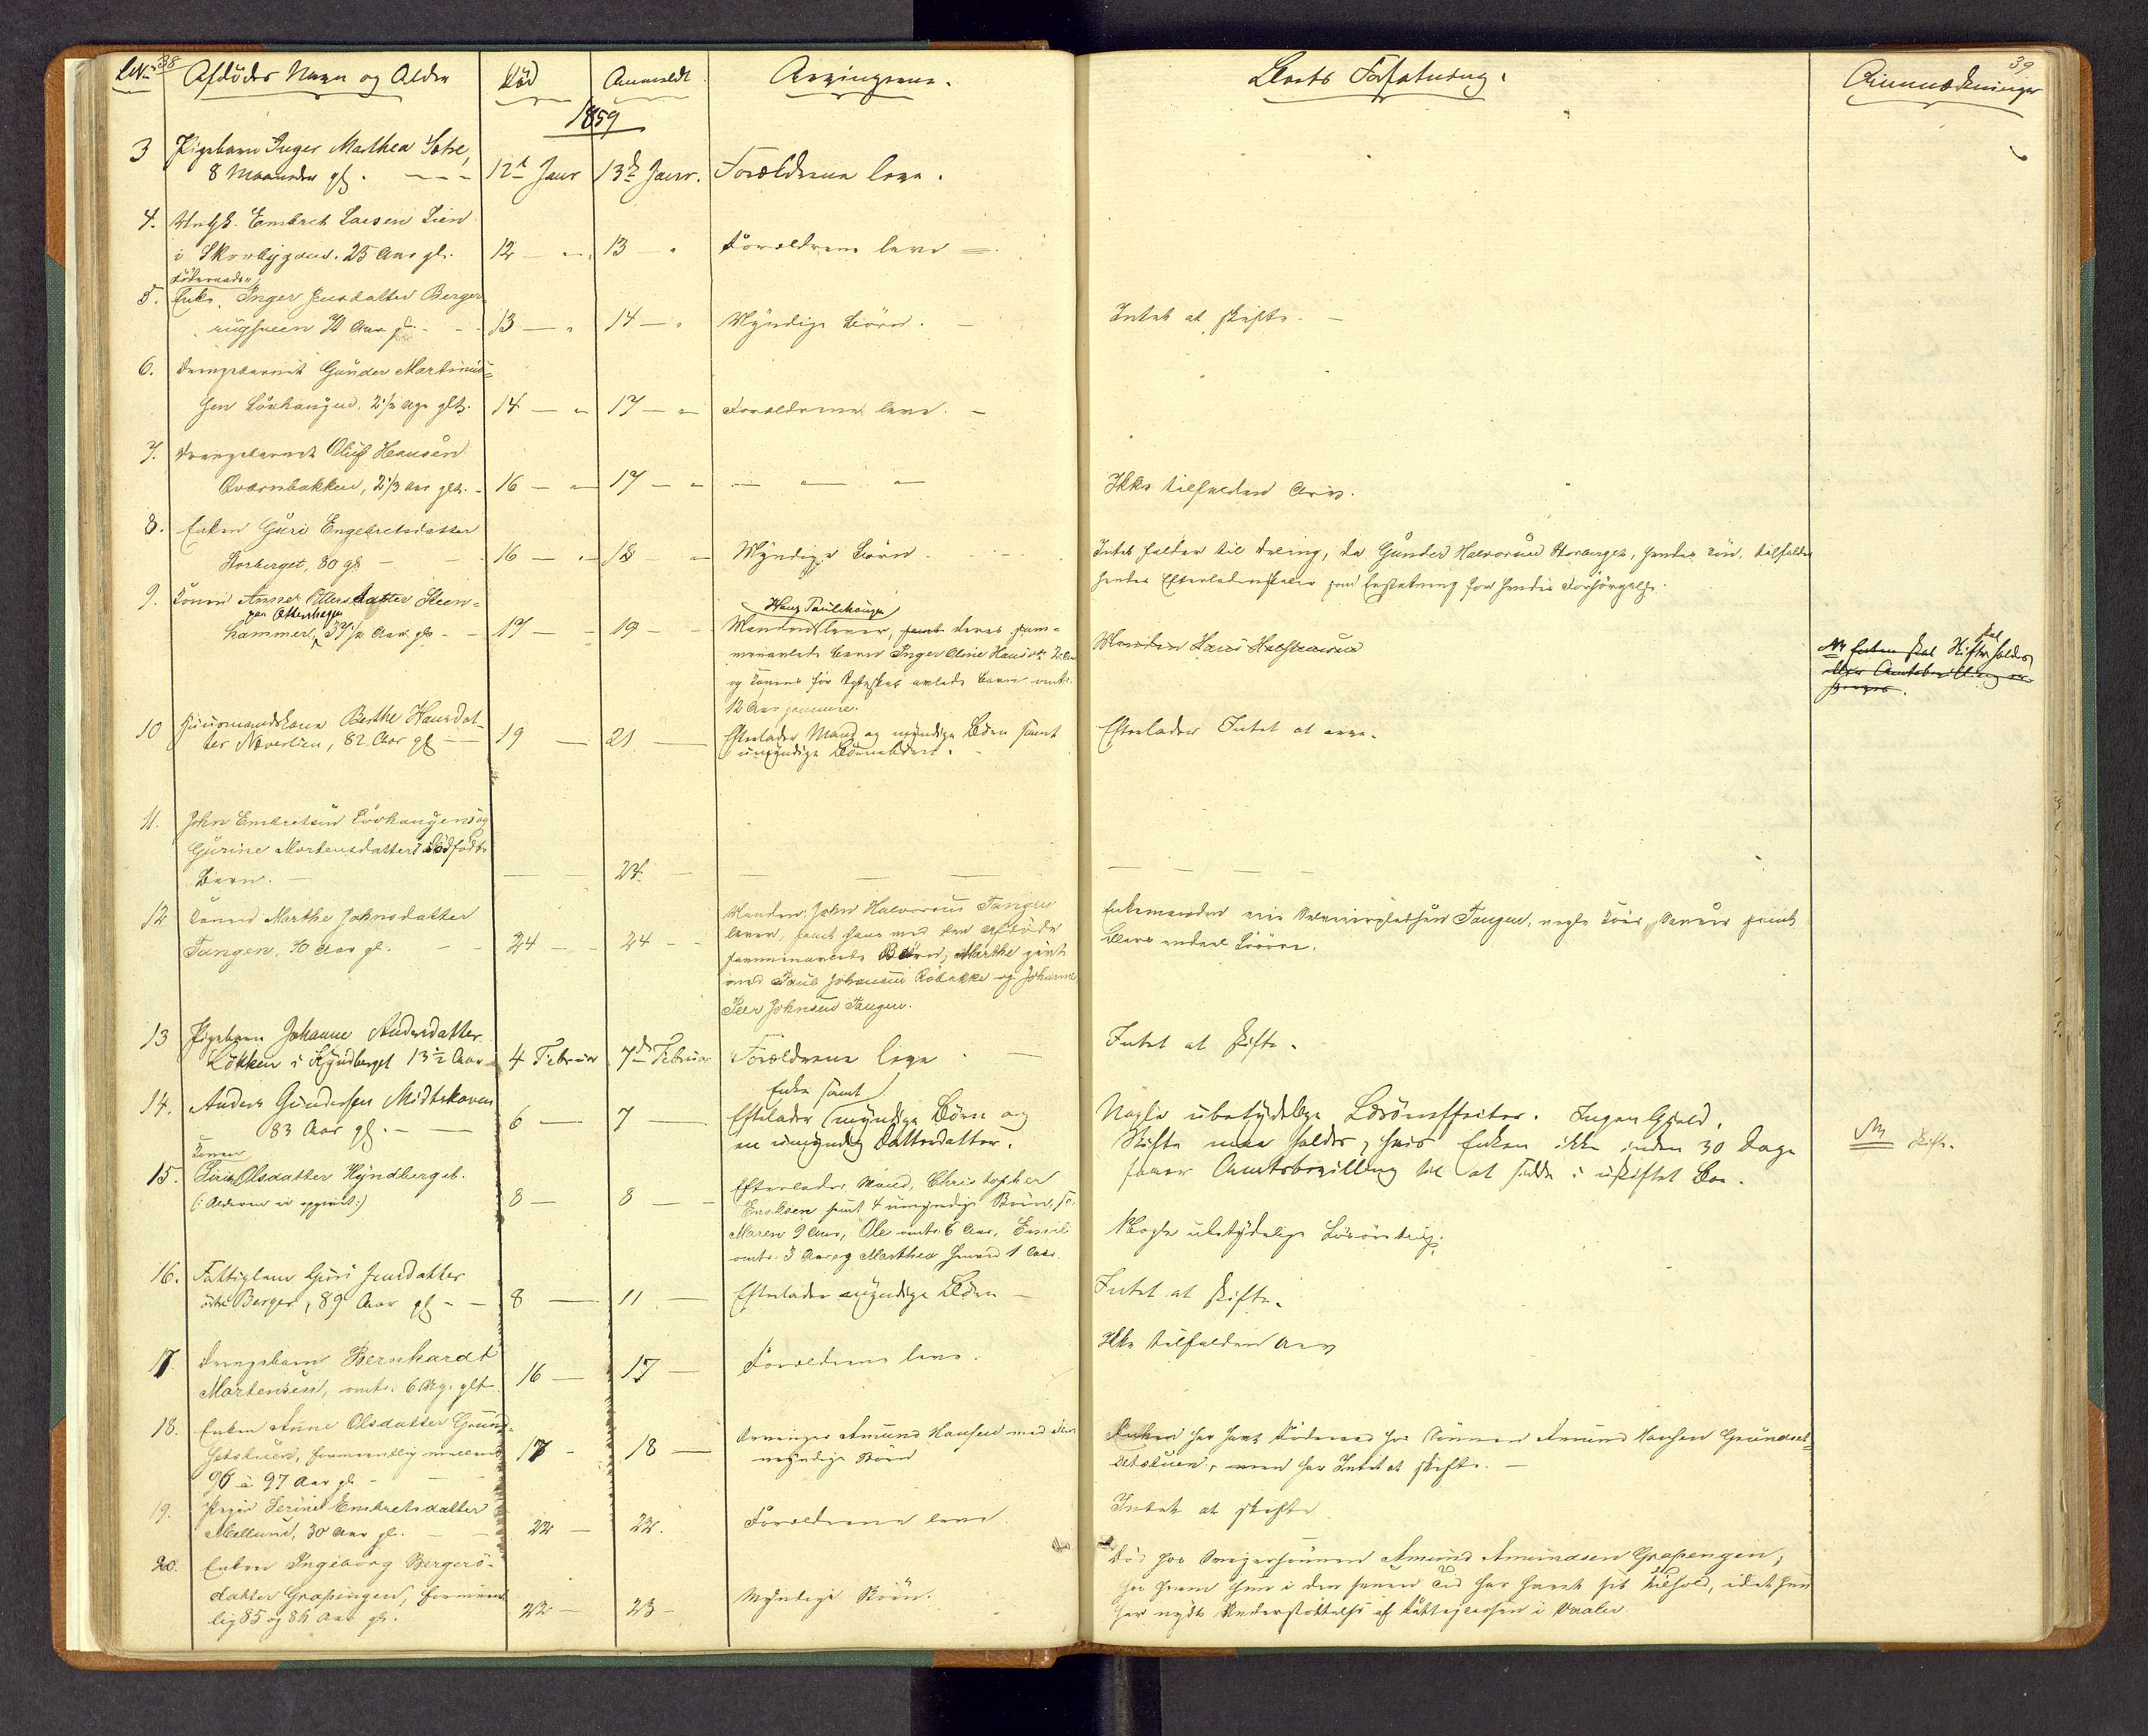 LNo 38 Afdødes Navn og Alder Död Anmeldt Arvingerne. Boets Forfatning. Anmærkninger 39
1859
3 Pigebarn Inger Mathea Sætre,
8 Maaneder gl. 12te Janr 13de Janr. Forældrene leve.
4. Ungk. Embret Larsen Lien
i Skovbygden. 25 Aar gl. 12 13 Forældrene leve
Föderaads
5. Enke. Inger Jensdatter Berger-
70 Aar gl. 13 14 Myndige Börn. Intet at skifte.
6. Drengebarnet Gunder Martinius-
sen Lövhaugen, 2 1/2 Age glt. 14 17 Forældrene leve.
7. Drengebarnet Oluf Hansen
Qvernbakken, 2 1/3 Aar glt. 16 17 Ikke tilfalden Arv.
8. Enken Guri Engebretsdatter
Storberget, 80 gl 16 18 Myndige Börn
Intet falder til Deling, da Gunder Halvorsen Storberget, hendes Sön, tilfalder
hendes Efterladenskaber som Erstatning for hendes Forsörgelse.
9. Konen Anne Ottersdatter Steen-
hammer, 37 1/2 Aar gl. 17 19
Hans Paulshaugen
Manden lever, samt deres sam-
menavlede barn Inger Oline Hansdtr 2 Aar
og Konens för Ægteskab avlede barn omtr.
12 Aar gammel.
Manden Hans
Skifte holdes
10 Huusmandskone Berthe Hansdat-
ter Noverlien, 82 Aar gl 19 21 Efterlader Mand og myndige Börn samt
umyndige Börnebörn.
Efterlader Intet at arve.
11. John Embretsen Lövhaugens og
Gurine Mortensdatters dödfödte
Barn. 24.
12 Konen Marthe Johnsdatter
Tangen, 70 Aar gl. 24 24
Manden John Halvorsen Tangen
lever, samt hans med den Afdöde
sammenavlede Börn, Marthe givt
med Paul Johansen Röbakke og Johannes
Peer Johnsen Tangen.
Enkemanden eier Tangen, nogle samt
andet Lösöre.
13 Pigebarn Johanne Andersdatter
Løkken i Kyndberget 13 1/2 Aar 4 Februar 7de Februar Forældrene leve
Intet at skifte.
14. Anders Gundersen Midtskoven
83 Aar gl. 6 7
Enke samt
Efterlader myndige Börn og
en umyndig Datterdatter.
Nogle ubetydelige Lösöreffecter. Ingen Gjeld.
Skifte maa holdes, hvis Enken ikke inden 30 Dage
faaer Amtsbevilling til at sidde i uskiftet Bo.
NB Skifte.
Konen
15. Siri Olsdatter Kyndberget.
(: Alderen ei opgivet :) 8 8
Efterlader Mand, Christopher
Enoksen samt 4 umyndige Börn,
Maren 9 Aar, Ole omtr. 6 Aar, Emil
omtr. 3 Aar og Marthea 1 Aar.
Nogle ubetydelige
16. Fattiglem Guri Jensdatter
Berger, 89 Aar gl 8 11 Efterlader myndige Börn
Intet at skifte.
17. Drengebarn Bernhardt
Martensen, omtr. 6 glt 16 17 Forældrene leve.
Ikke tilfalden Arv
18. Enken Anne Olsdatter Grund-
setstuen, formeentlig mellem
96 a 97 Aar gl. 17 18
Arvinger Amund Hansen med flere
myndige Börn
Enken har havt Föderaad hos Sönnen Amund Hansen Grundset-
stuen, men har Intet at skifte.
19. Pigen Serine Embretsdatter
Mellund, 30 Aar gl. 22 22. Forældrene leve.
Intet at skifte
20. Enken Ingeborg Bergers-
datter Graßengen, formeent-
lig 85 og 86 Aar gl. 22 23 Myndige Börn.
Död hos Svigersönnen Amund Amundsen Graßengen,
hos hvem hun i den senere Tid har havt sit Tilhold, idet hun
har nydt Understöttelse af Fattigcassen i Vaaler.